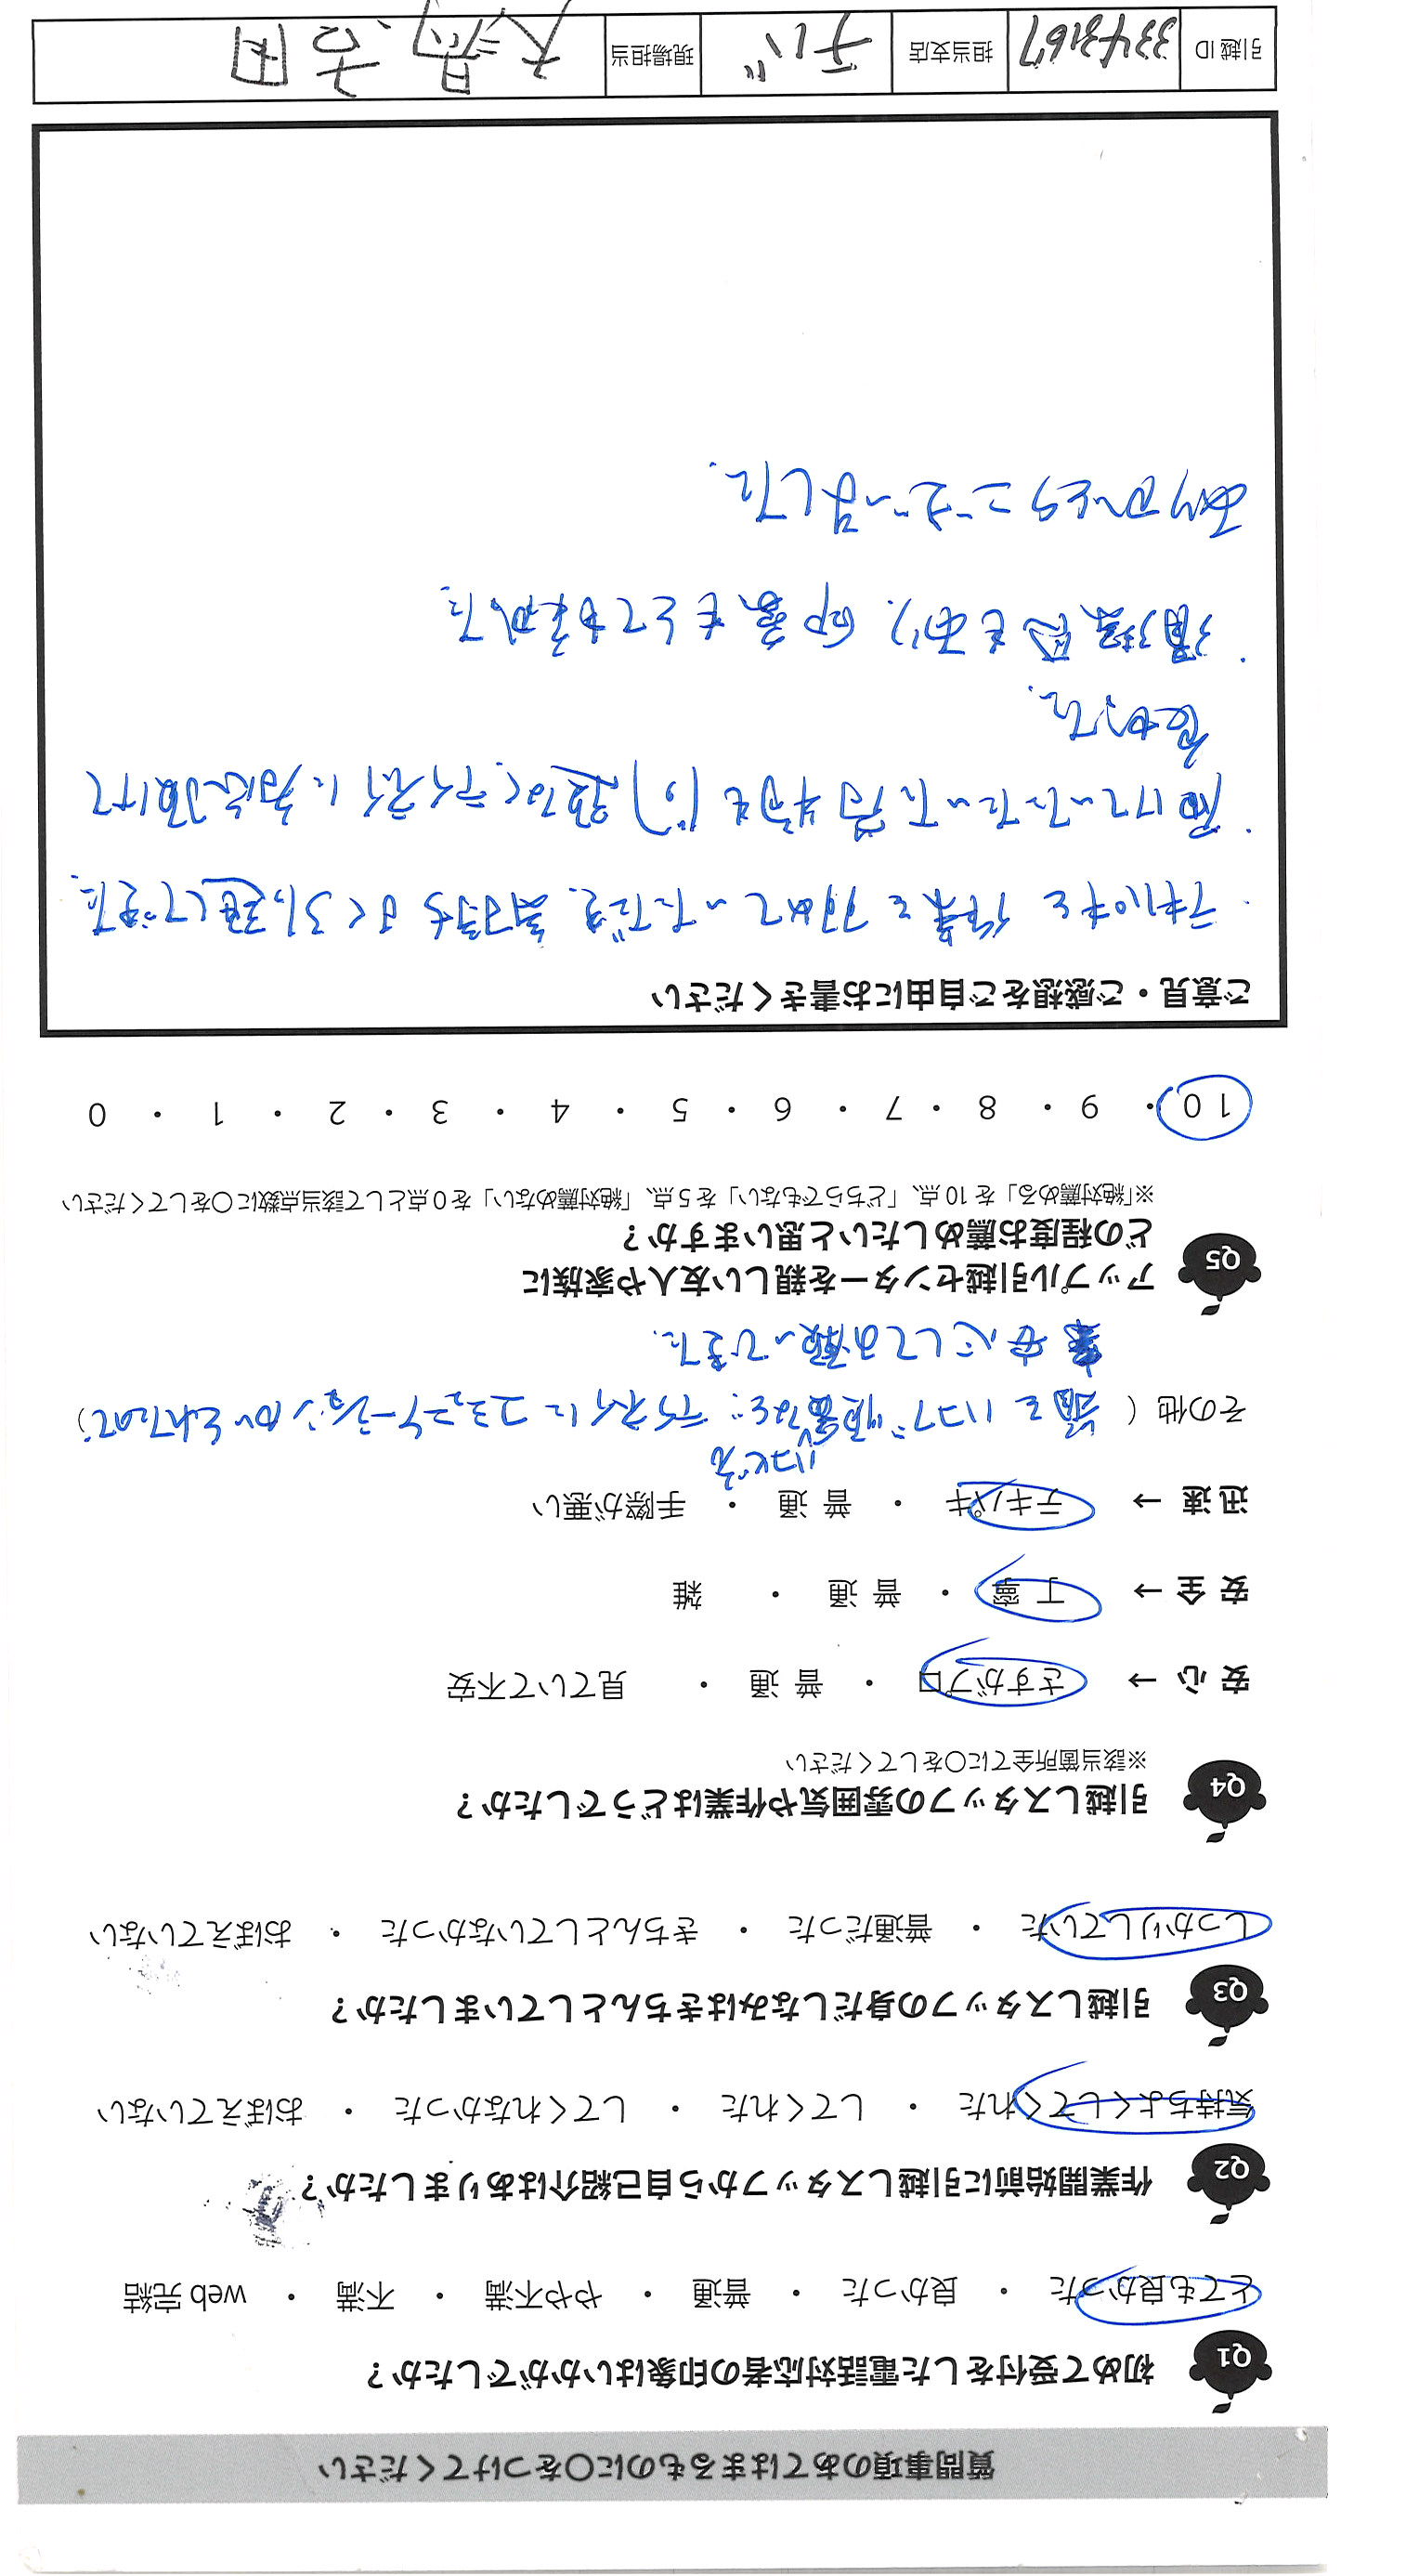 質問事項のあてはまるものに○をつけてください
Q1 初めて受付をした電話対応者の印象はいかがでしたか？
とても良かった ・ 良かった ・ 普通 ・ やや不満 ・ 不満 ・ web 完結
Q2 作業開始前に引越しスタッフから自己紹介はありましたか？
気持ちよくしてくれた ・ してくれた ・ してくれなかった ・ おぼえていない
Q3 引越しスタッフの身だしなみはきちんとしていましたか？
しっかりしていた ・ 普通だった ・ きちんとしていなかった ・ おぼえていない
Q4 引越しスタッフの雰囲気や作業はどうでしたか？
※該当箇所全てに○をしてください
安 心 → さすがプロ ・ 普 通 ・ 見ていて不安
安 全 → 丁 寧 ・ 普 通 ・ 雑
迅 速 → テキパキ ・ 普 通 ・ 手際が悪い
その他 ( ハコブ順番など テイネイにコミュニケーションがとれたので )
安心してお願いできた.
Q5 アップル引越センターを親しい友人や家族に
どの程度お薦めしたいと思いますか？
※「絶対薦める」を 10 点、「どちらでもない」を 5 点、「絶対薦めない」を 0 点として該当点数に○をしてください
10 ・ 9 ・ 8 ・ 7 ・ 6 ・ 5 ・ 4 ・ 3 ・ 2 ・ 1 ・ 0
ご意見・ご感想をご自由にお書きください
・テキパキと作業を初めていただき. 気持ちよく引っ越しできた.
・届けていただいた荷物も テイネイに対応頂けて
良かった.
・清潔感もあり. 印象もとても良かった.
ありがとうございました.
引越 ID 3343167 担当支店 千バ 現場担当 大湯. 吉田